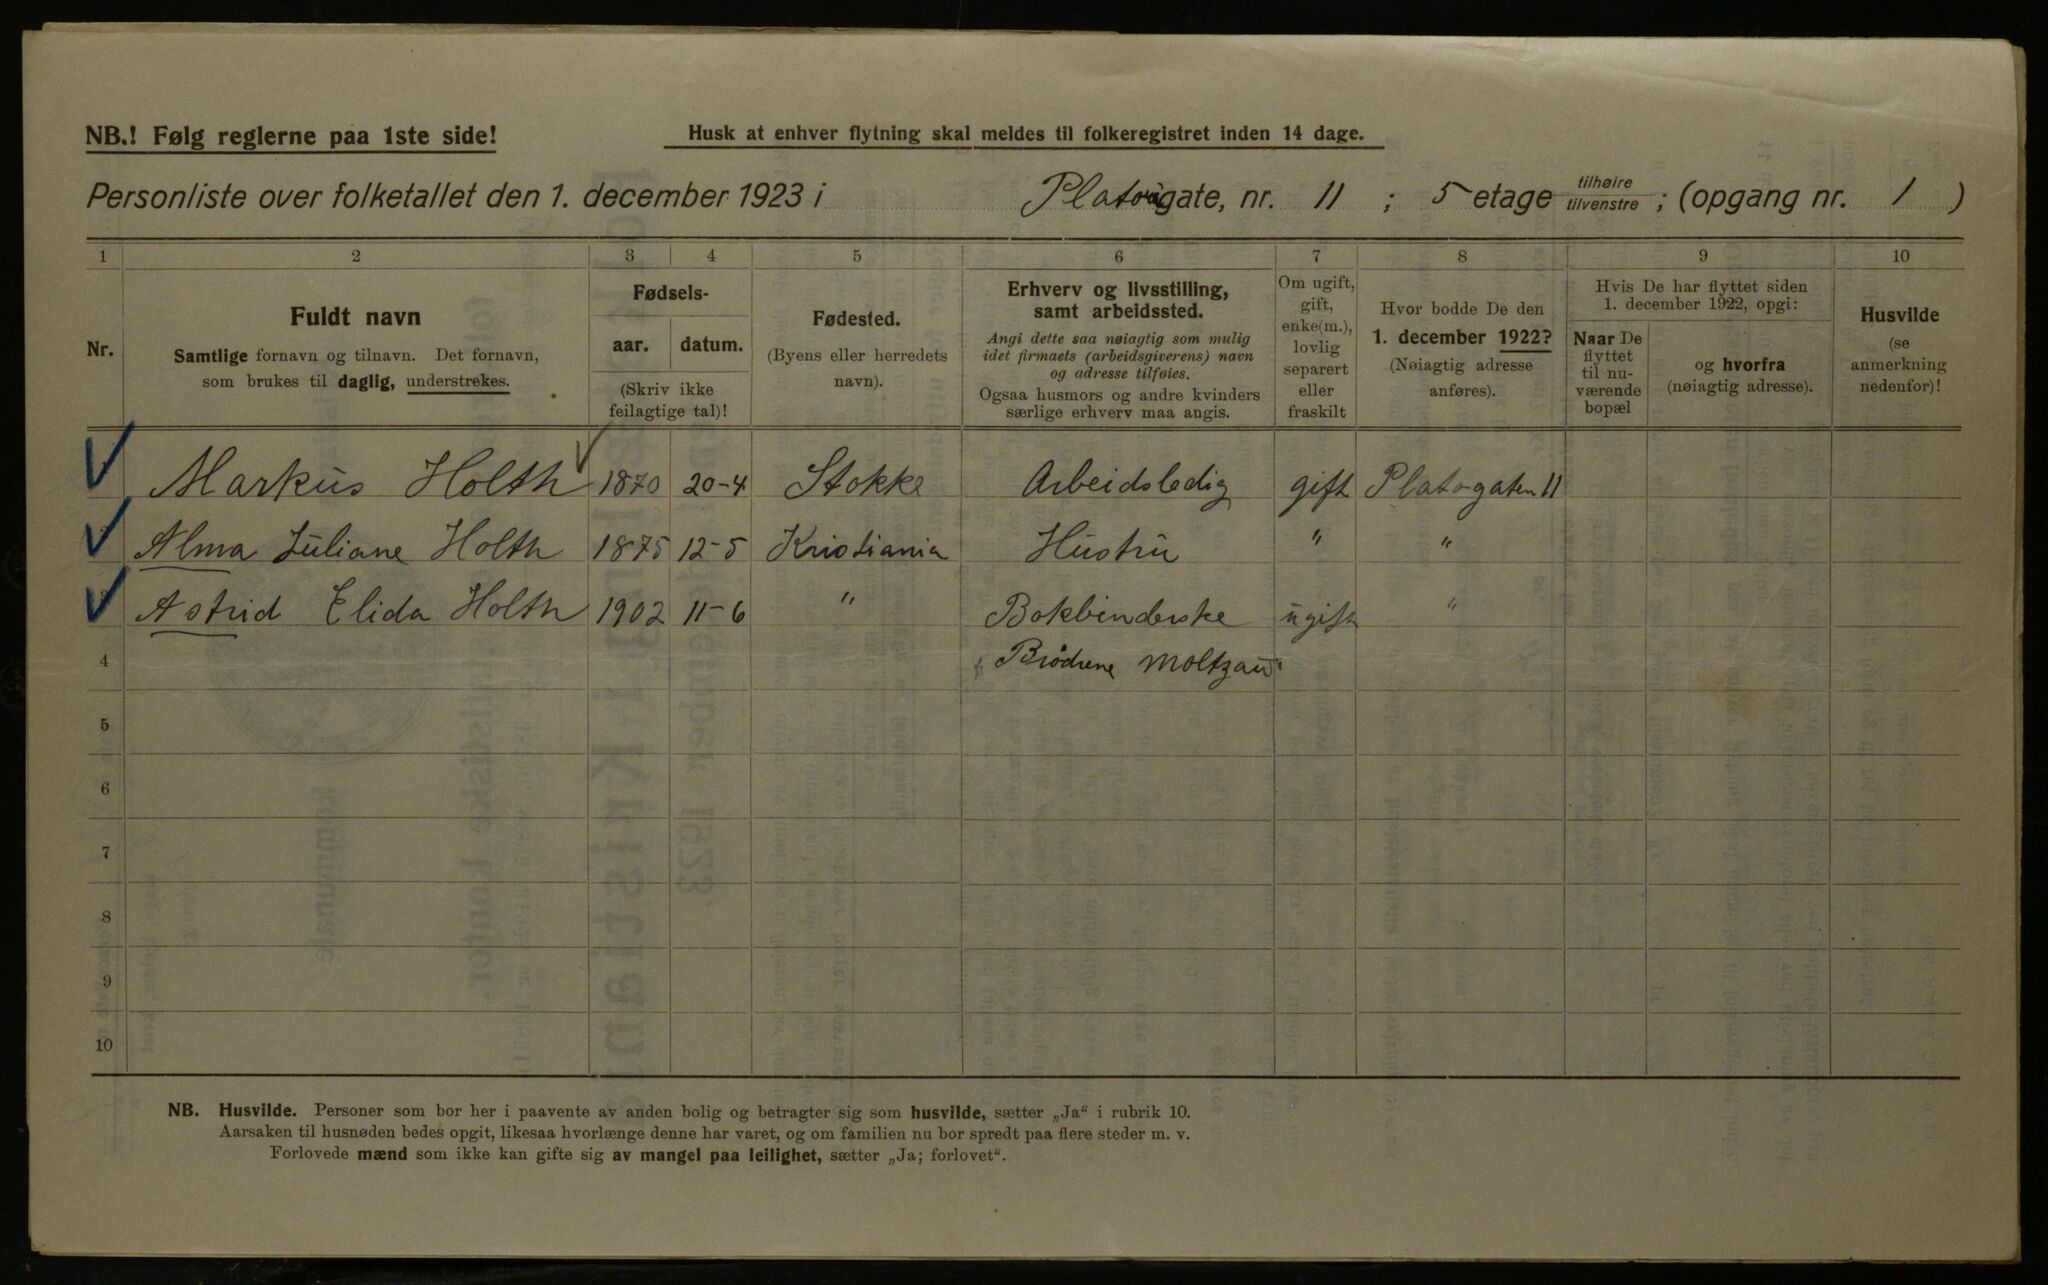 NB.! Følg reglerne paa 1ste side!
Husk at enhver flytning skal meldes til folkeregistret inden 14 dage.
Personliste over folketallet den 1. december 1923 i Platousgate, nr. 11 ; 5 etage tilhøire tilvenstre ; (opgang nr. 1 )
1 2 3 4 5 6 7 8 9 10
Nr.
Fuldt navn
Samtlige fornavn og tilnavn. Det fornavn,
som brukes til daglig, understrekes.
Fødsels-
aar. datum.
(Skriv ikke
feilagtige tal)!
Fødested.
(Byens eller herredets
navn).
Erhverv og livsstilling,
samt arbeidssted.
Angi dette saa nøiagtig som mulig
idet firmaets (arbeidsgiverens) navn
og adresse tilføies.
Ogsaa husmors og andre kvinders
særlige erhverv maa angis.
Om ugift,
gift,
enke(m.),
lovlig
separert
eller
fraskilt
Hvor bodde De den
1. december 1922?
(Nøiagtig adresse
anføres).
Hvis De har flyttet siden
1. december 1922, opgi:
Naar De
flyttet
til nu-
værende
bopæl
og hvorfra
(nøiagtig adresse).
Husvilde
(se
anmerkning
nedenfor)!
Markus Holth 1870 20-4 Stokke Arbeidsledig gift Platogaten 11
Alma Juliane Holth 1875 12-5 Kristiania Hustru " "
Astrid Elida Holth 1902 11-6 " Bokbinderske ugift "
4 "Brødrene Moltzau"
5
6
7
8
9
10
NB. Husvilde. Personer som bor her i paavente av anden bolig og betragter sig som husvilde, sætter „Ja“ i rubrik 10.
Aarsaken til husnøden bedes opgit, likesaa hvorlænge denne har varet, og om familien nu bor spredt paa flere steder m. v.
Forlovede mænd som ikke kan gifte sig av mangel paa leilighet, sætter „Ja; forlovet“.